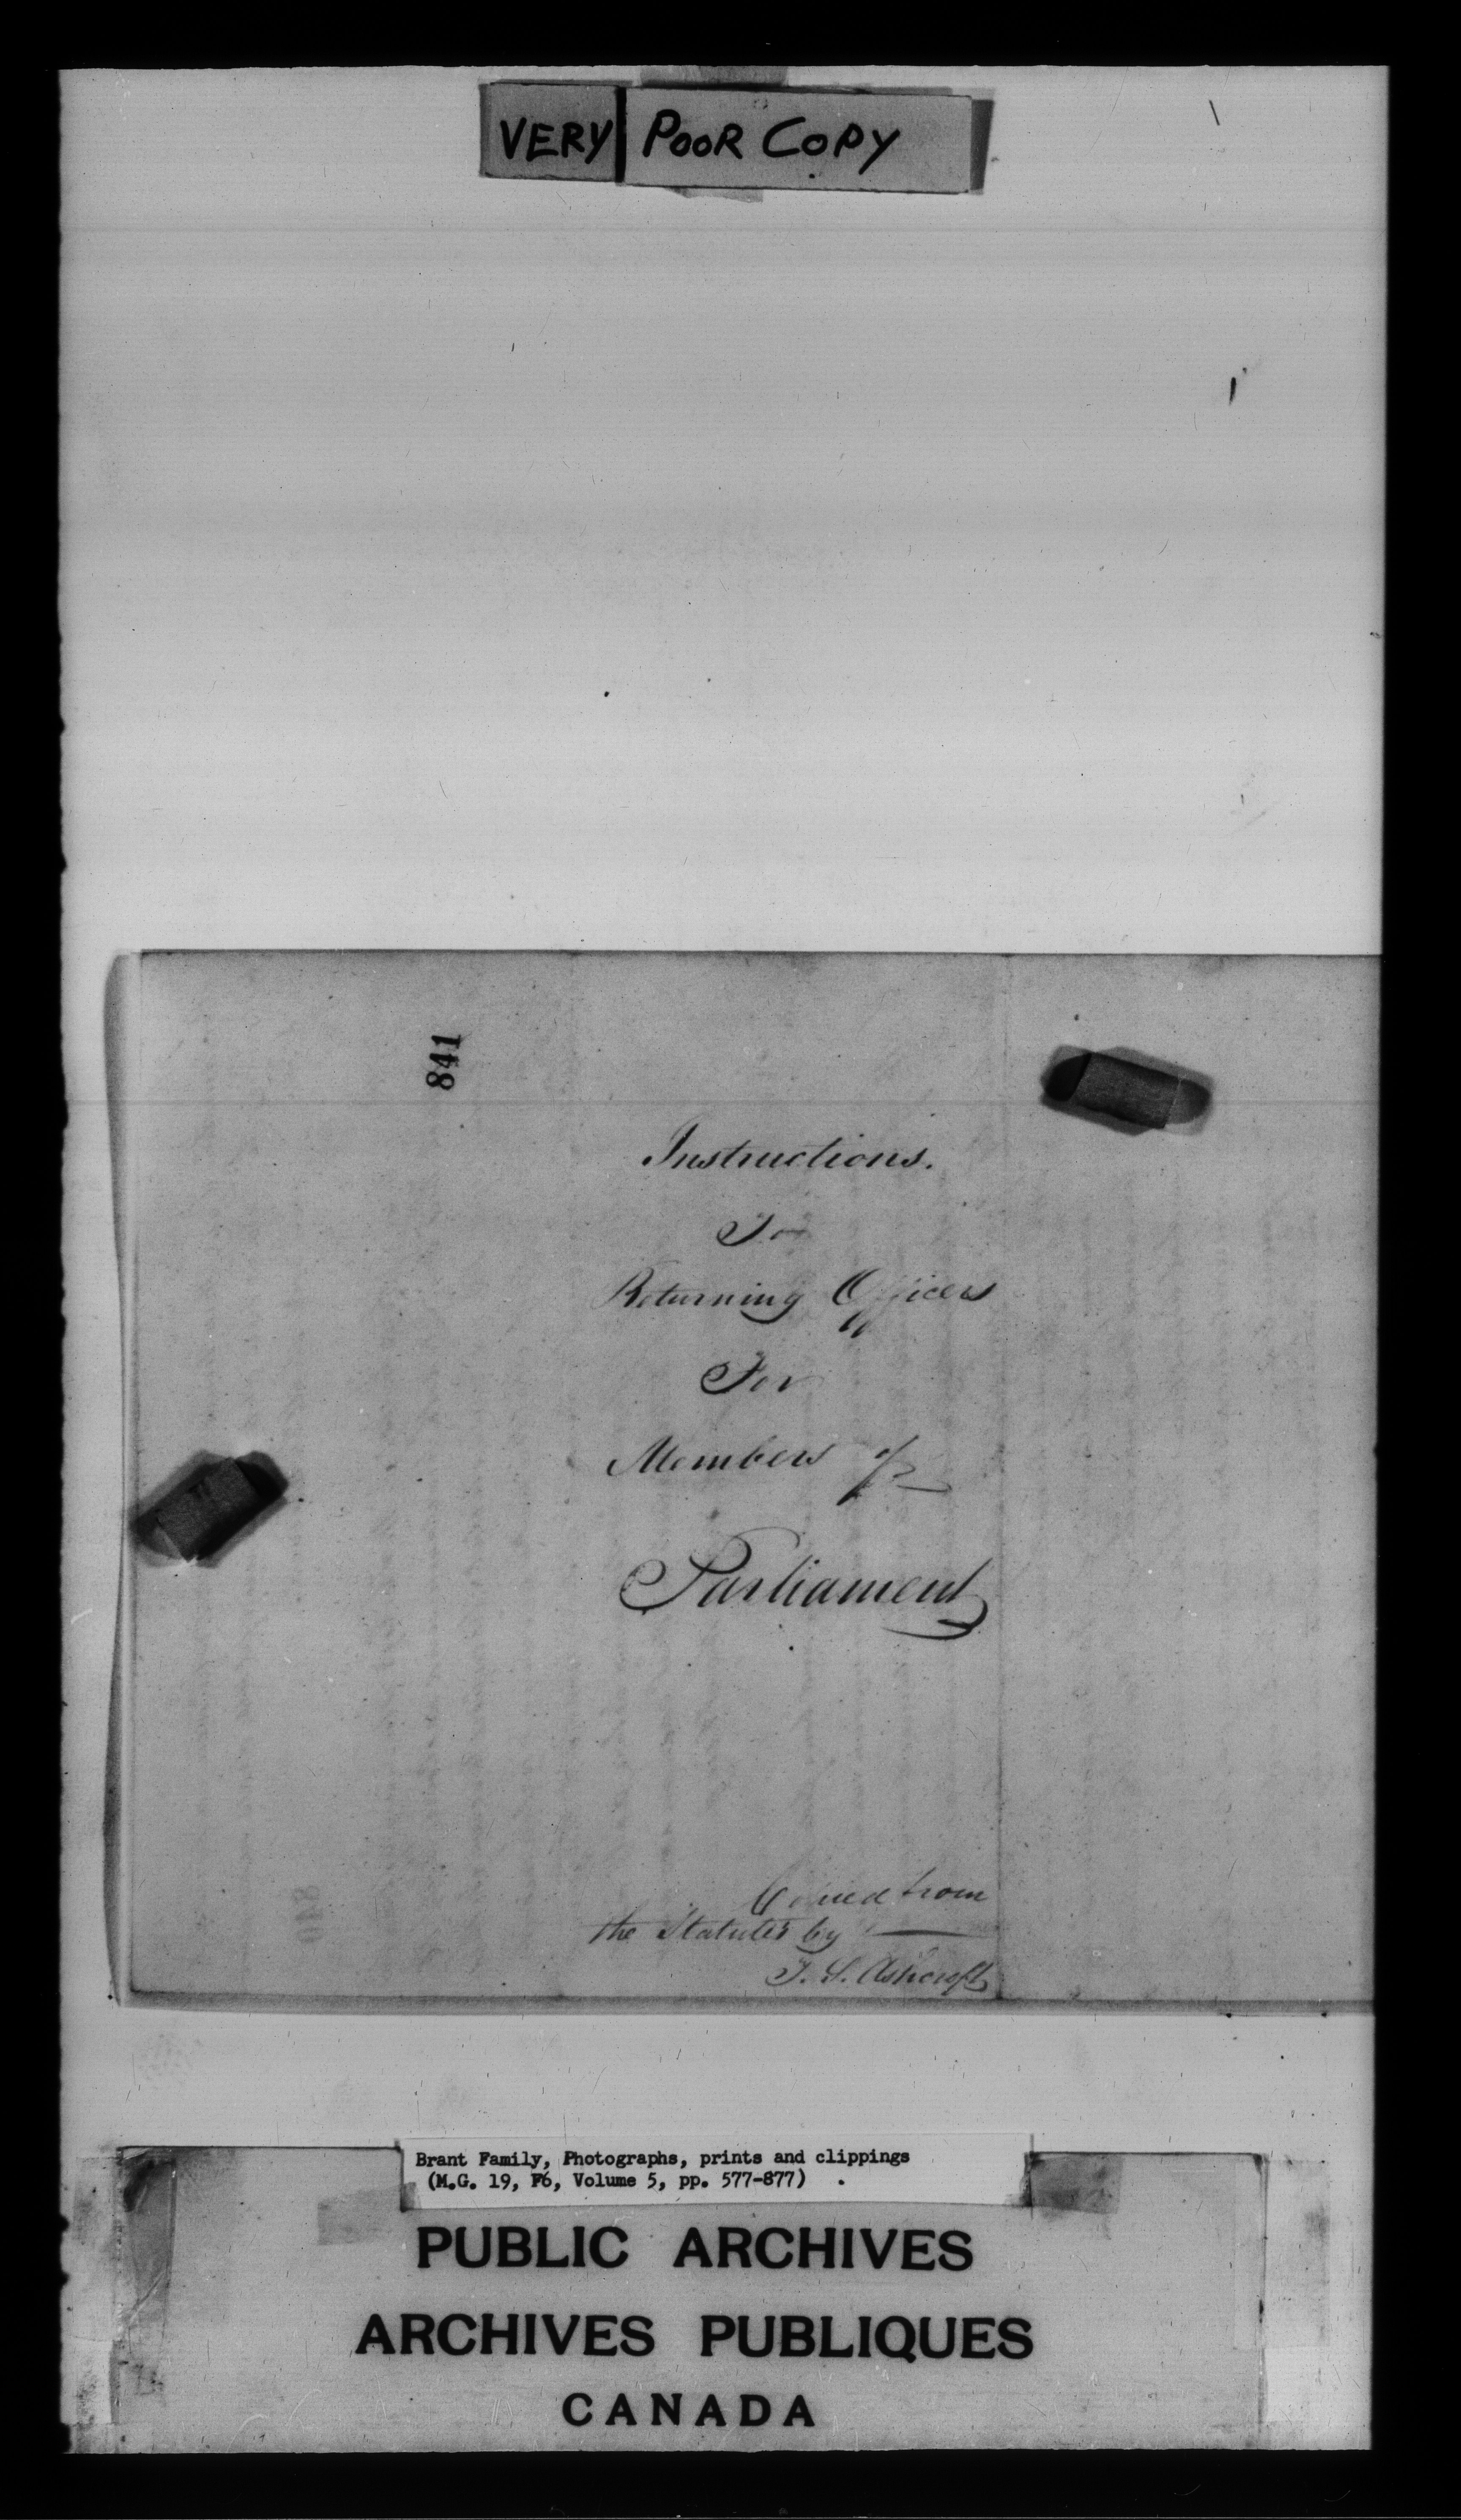 VERY POOR COPY
841
Instructions.
To
Returning Officers
For
Members of
Parliament
Copied from
the Statutes by
T. S. Ashcroft
Brant Family, Photographs, prints and clippings
(M.G. 19, F6, Volume 5, pp. 577-877)
PUBLIC ARCHIVES
ARCHIVES PUBLIQUES
CANADA